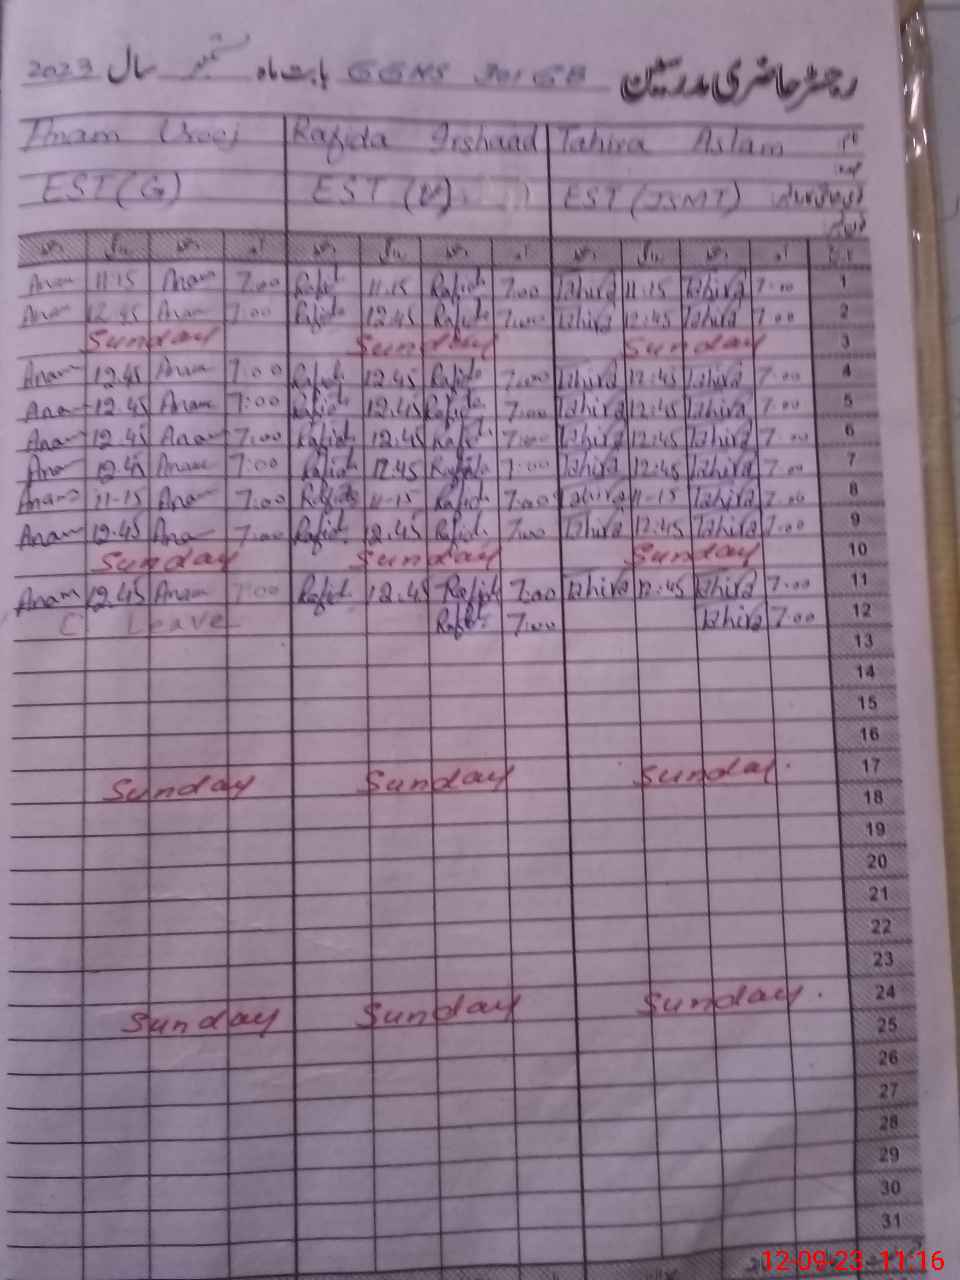 رجسٹر حاضری مدرسین GGHS 301 GB بابت ماہ ستمبر سال 2023
نام Tahira Aslam Rafida Irshaad Anam
عہدہ
EST (G) EST (U) EST (JSMT)
Anam 11:15 Anam 7:00 Rafid 11:15 Rafida 7:00 Tahira 11:15 Tahira 7:00 1
Anam 12.45 Anam 7:00 Rafida 12.45 Rafida 7:00 Tahira 12:45 Tahira 7:00 2
Sunday Sunday Sunday 3
Anam 12.45 Anam 7:00 Rafida 12.45 Rafida 7:00 Tahira 12:45 Tahira 7:00 4
Ana 12.45 Anam 7:00 Rafida 12.45 Rafida 7:00 Tahira 12:45 Tahira 7:00 5
Ana 12.45 Ana 7:00 Rafida 12.45 Rafid. 7:00 Tahira 12:45 Tahira 7:00 6
Ana 12.45 Anam 7:00 Rafida 12.45 Rafida 7:00 Tahira 12:45 Tahira 7:00 7
Anam 11-15 Ana 7:00 Rafida 11-15 Rafid. 7:00 Tahira 11-15 Tahira 7:00 8
Anam 12.45 Ana 7:00 Rafid. 12.45 Rafid. 7:00 Tahira 12:45 Tahira 7:00 9
Sunday Sunday Sunday 10
Anam 12.45 Anam 7:00 Rafid. 12.45 Rafid 7:00 Tahira 12:45 Tahira 7:00 11
C Leave Rafid. 7:00 Tahira 7:00 12
13
14
15
16
Sunday Sunday Sunday. 17
18
19
20
21
22
23
Sunday Sunday Sunday. 24
25
26
27
28
29
30
31
12-09-23 11:16